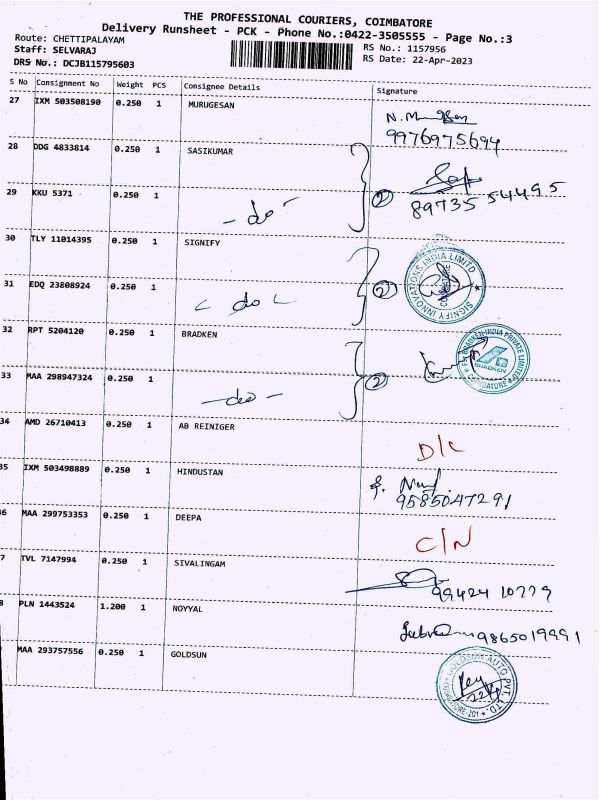 THE PROFESSIONAL COURIERS, COIMBATORE
Delivery Runsheet - PCK - Phone No.:0422-3505555 - Page No.:3
Route: CHETTIPALAYAM
Staff: SELVARAJ
DRS No.: DCJB115795603
RS No.: 1157956
RS Date: 22-Apr-2023
S No Consignment No Weight PCS Consignee Details Signature
27 IXM 503508190 0.250 1 MURUGESAN
9976975694
28 DDG 4833814 0.250 1 SASIKUMAR
29 KKU 5371 0.250 1 - do - 2 89735 54495
30 TLY 11014395 0.250 1 SIGNIFY
SIGNIFY INNOVATIONS INDIA LIMITED
31 EDQ 23808924 0.250 1 do 2
32 RPT 5204120 0.250 1 BRADKEN
BRADKEN INDIA PRIVATE LIMITED
BRADKEN
COIMBATORE
33 MAA 298947324 0.250 1 - do - 2
34 AMD 26710413 0.250 1 AB REINIGER D/L
35 IXM 503498889 0.250 1 HINDUSTAN
9585047291
36 MAA 299753353 0.250 1 DEEPA C/N
7 TVL 7147994 0.250 1 SIVALINGAM
99424 10779
8 PLN 1443524 1.200 1 NOYYAL 9865019991
MAA 293757556 0.250 1 GOLDSUN
AUTO PVT. LTD.